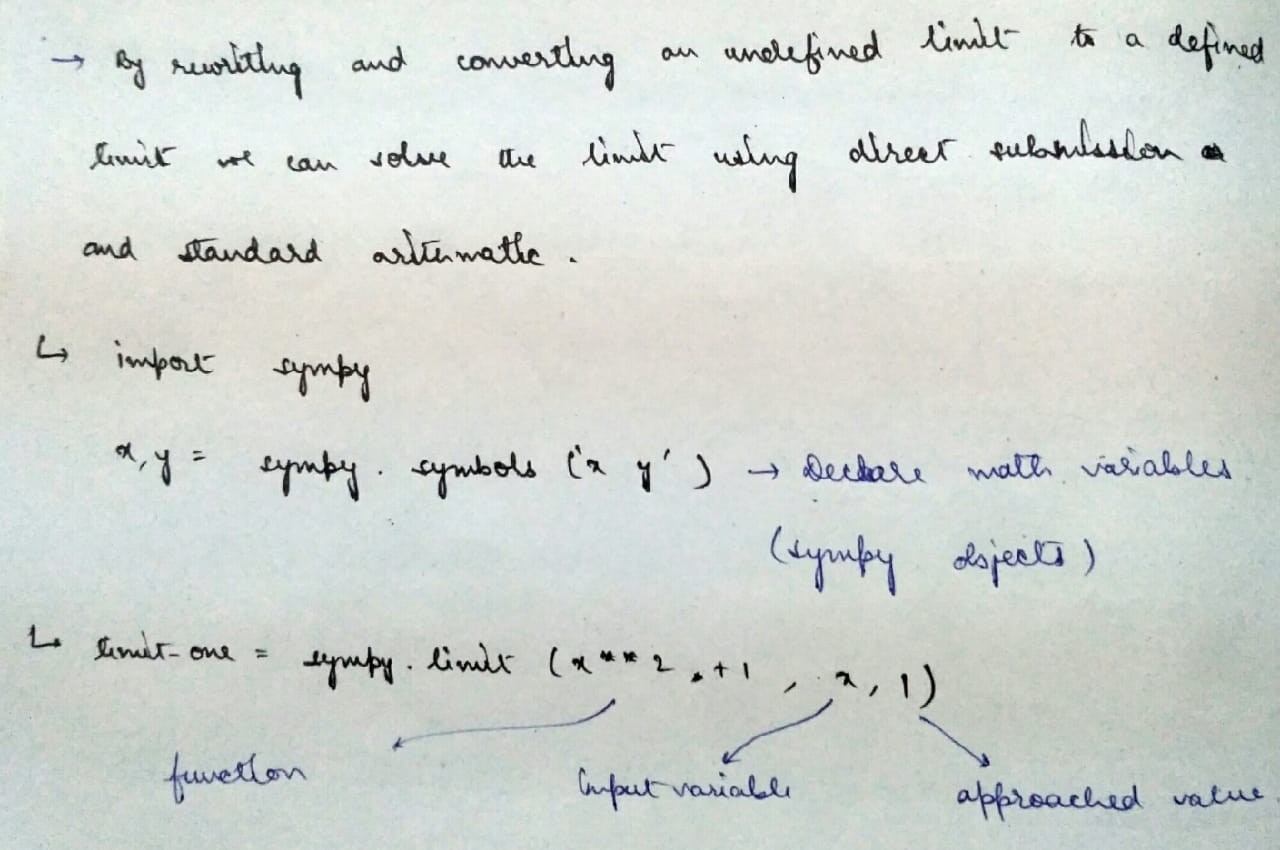 → By rewriting and converting an undefined limit to a defined
limit we can solve the limit using direct submission
and standard aritematic .
↳ import sympy
x, y = sympy . symbols ('x y') → Declare math variables
(sympy objects)
↳ limit_one = sympy . limit (x**2 + 1 , x, 1)
function input variable approached value